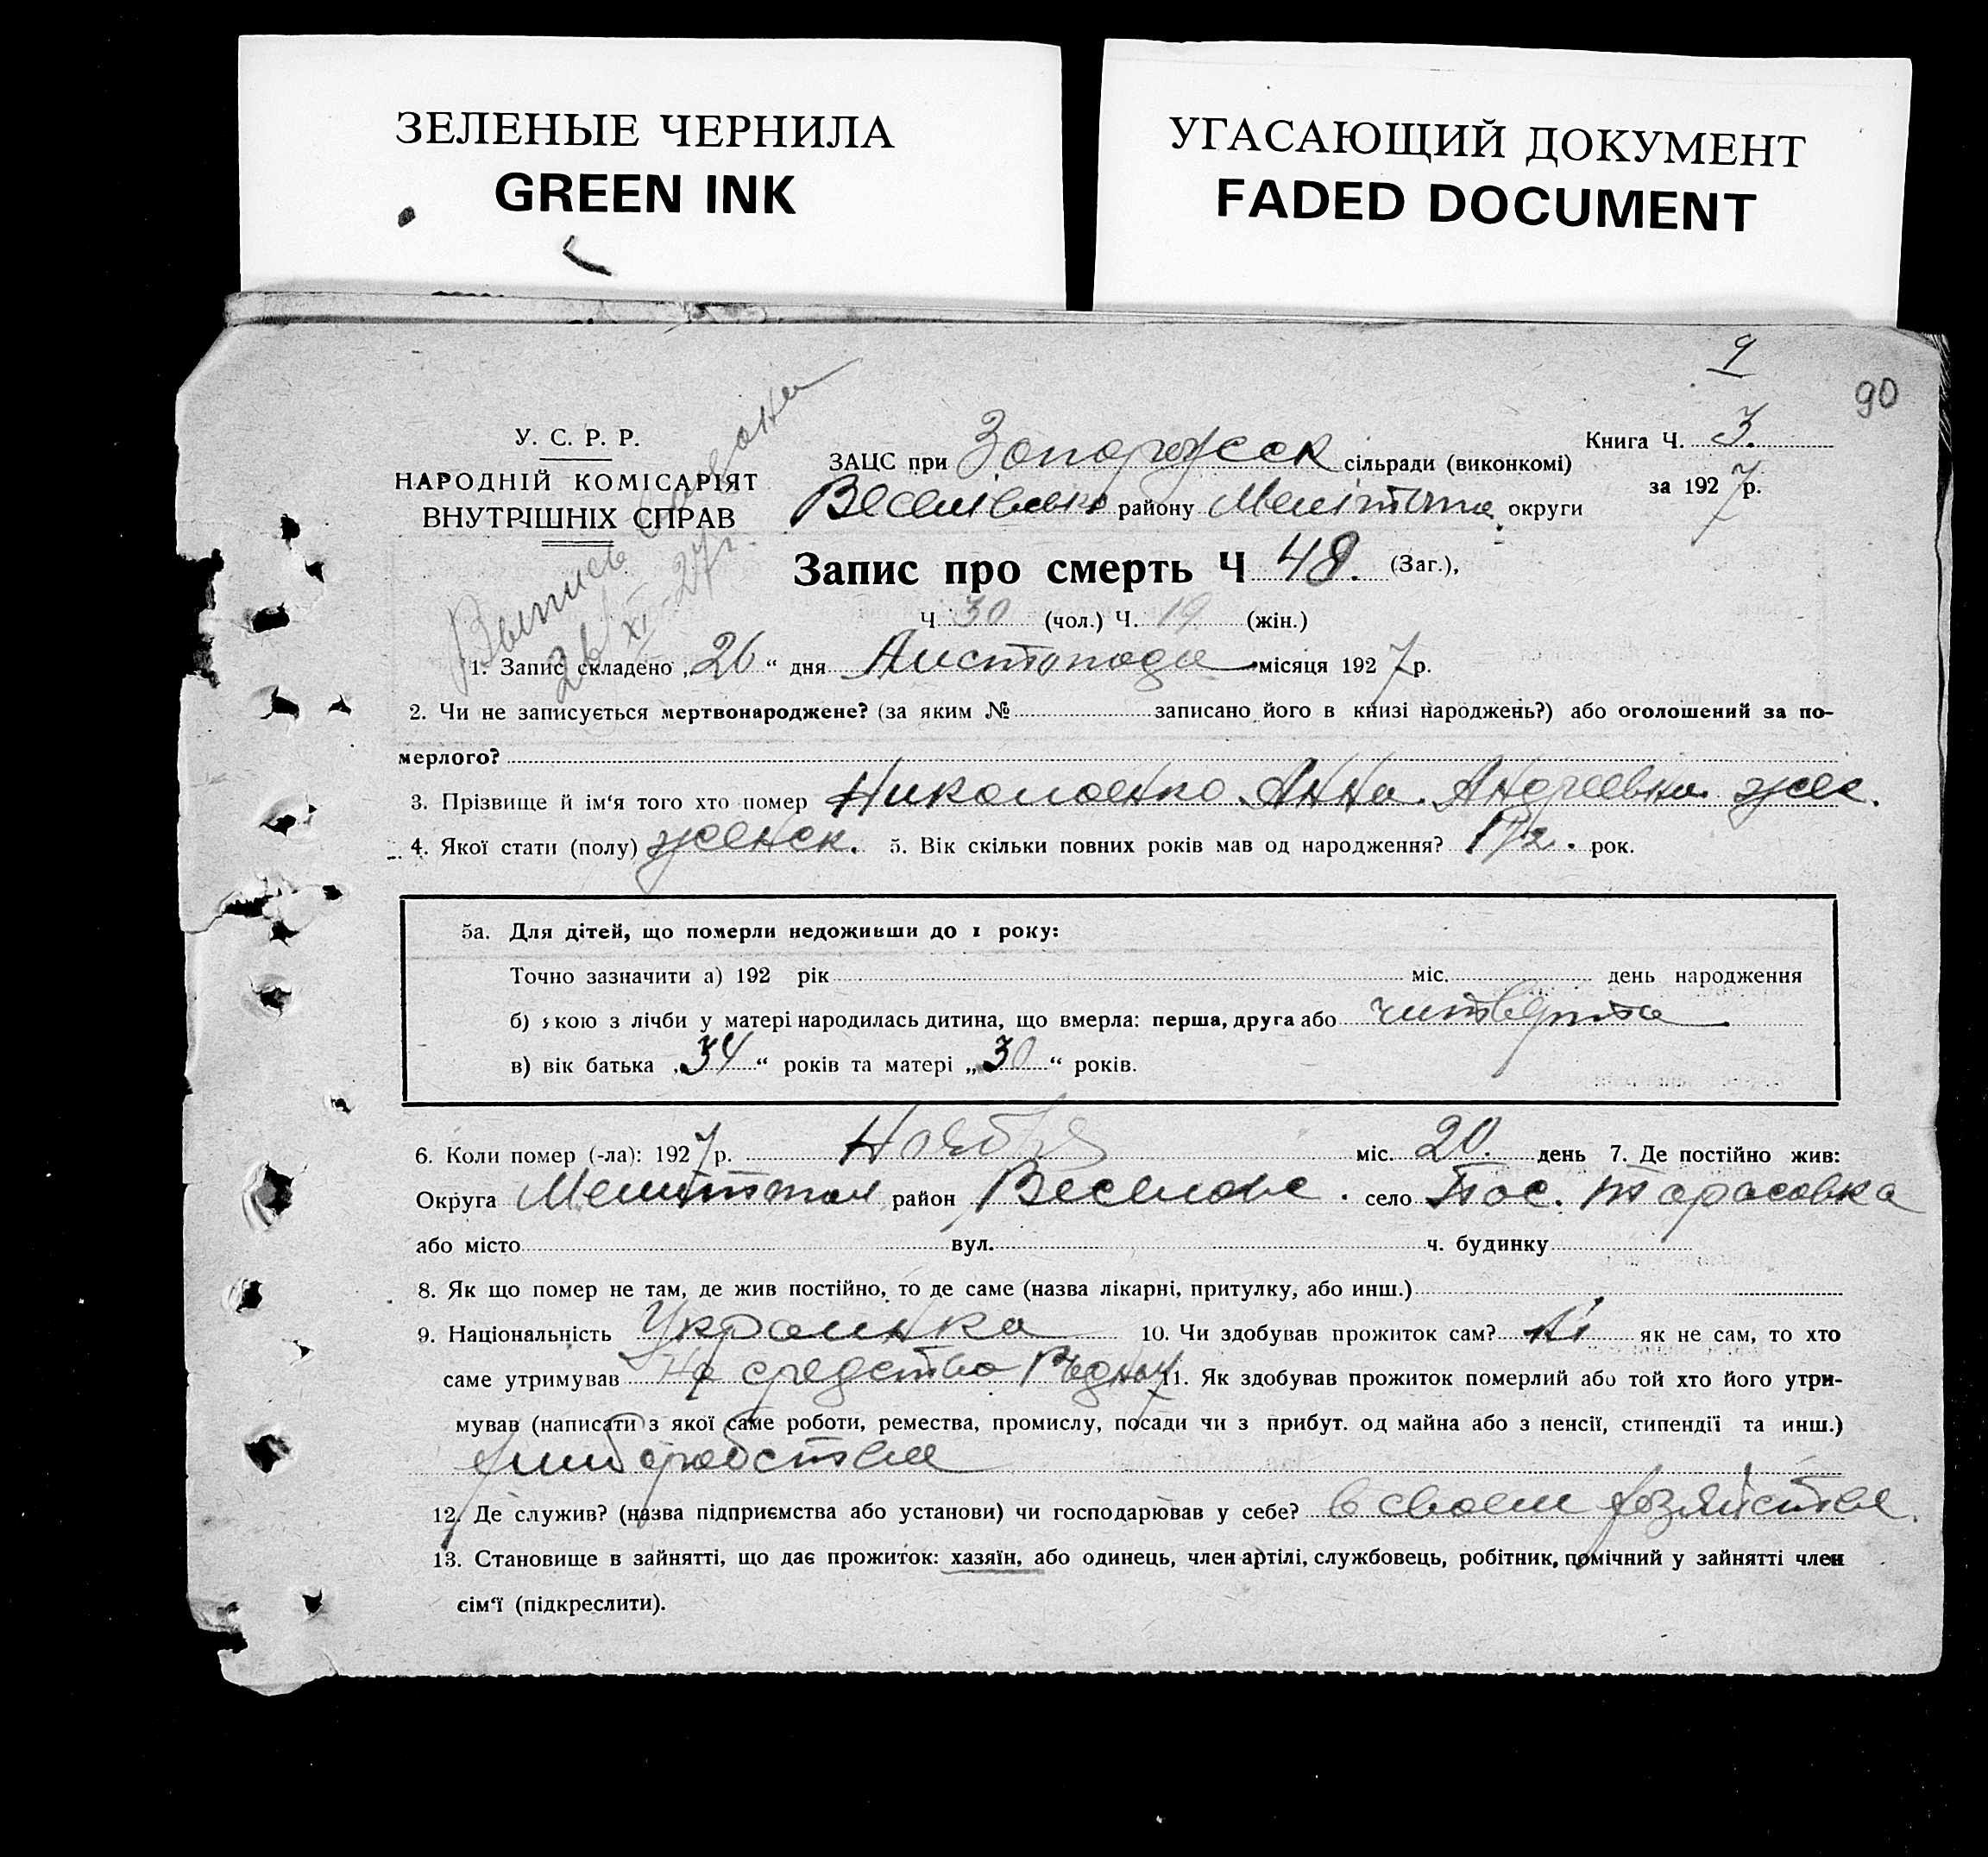 ЗЕЛЕНЫЕ ЧЕРНИЛА
GREEN INK
УГАСАЮЩИЙ ДОКУМЕНТ
FADED DOCUMENT
9
90
У. С. Р. Р.
НАРОДНІЙ КОМІСАРІЯТ
ВНУТРІШНІХ СПРАВ
Выпись
26 XI-27г.
ЗАЦС при Запорожск сільради (виконкомі)
Веселівськ району Мелітоп. округи
Книга Ч. 3.
за 1927 р.
Запис про смерть Ч 48. (Заг.),
Ч 30 (чол.) Ч. 19 (жін.)
1. Запис складено „26“ дня Листопада місяця 1927 р.
2. Чи не записується мертвонароджене? (за яким № записано його в книзі народжень?) або оголошений за по-
мерлого?
3. Прізвище й ім‘я того хто помер Николаенко Анна Андреевна
4. Якої стати (полу) женск. 5. Вік скільки повних років мав од народження? 1 1/2. рок.
5а. Для дітей, що померли недоживши до 1 року:
Точно зазначити а) 192 рік міс. день народження
б) якою з лічби у матері народилась дитина, що вмерла: перша, друга або читверта
в) вік батька „34“ років та матері „30“ років.
6. Коли помер (-ла): 1927 р. Ноября міс. 20. день 7. Де постійно жив:
Округа район село Пос. Тарасовка
або місто вул. ч. будинку
8. Як що помер не там, де жив постійно, то де саме (назва лікарні, притулку, або инш.)
9. Національність Украинка 10. Чи здобував прожиток сам? Ні як не сам, то хто
саме утримував на средства 11. Як здобував прожиток померлий або той хто його утри-
мував (написати з якої саме роботи, ремества, промислу, посади чи з прибут. од майна або з пенсії, стипендії та инш.)
12. Де служив? (назва підприємства або установи) чи господарював у себе? в своем хозяйстве.
13. Становище в зайнятті, що дає прожиток: хазяїн, або одинець, член артілі, службовець, робітник, помічний у зайнятті член
сім‘ї (підкреслити).